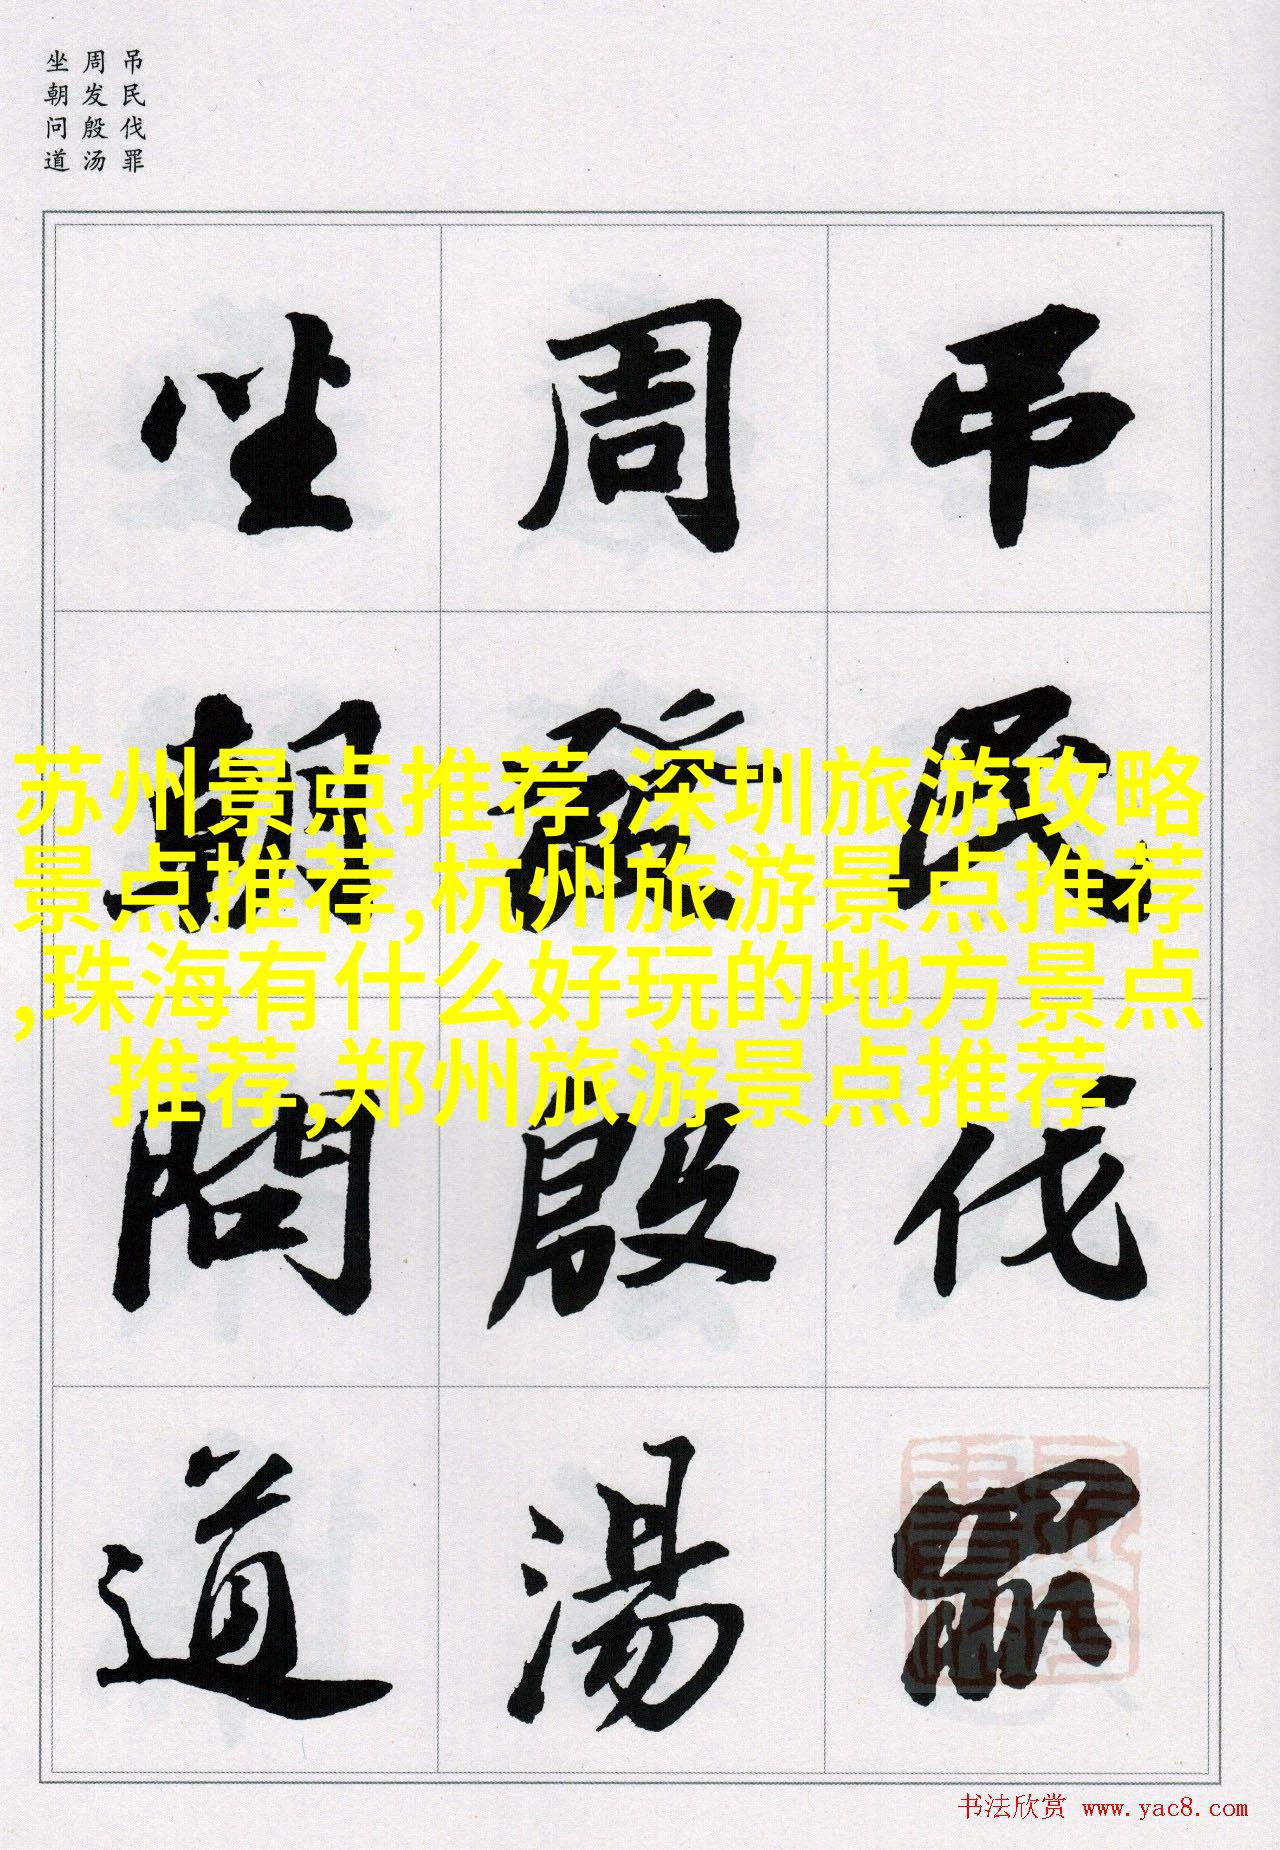 吊民伐罪
周发殷汤
坐朝问道
吊民伐罪
周發殷湯
坐朝問道
苏州景点推荐,深圳旅游攻略
景点推荐,杭州旅游景点推荐
,珠海有什么好玩的地方景点
推荐,郑州旅游景点推荐
书法欣赏 www.yac8.com